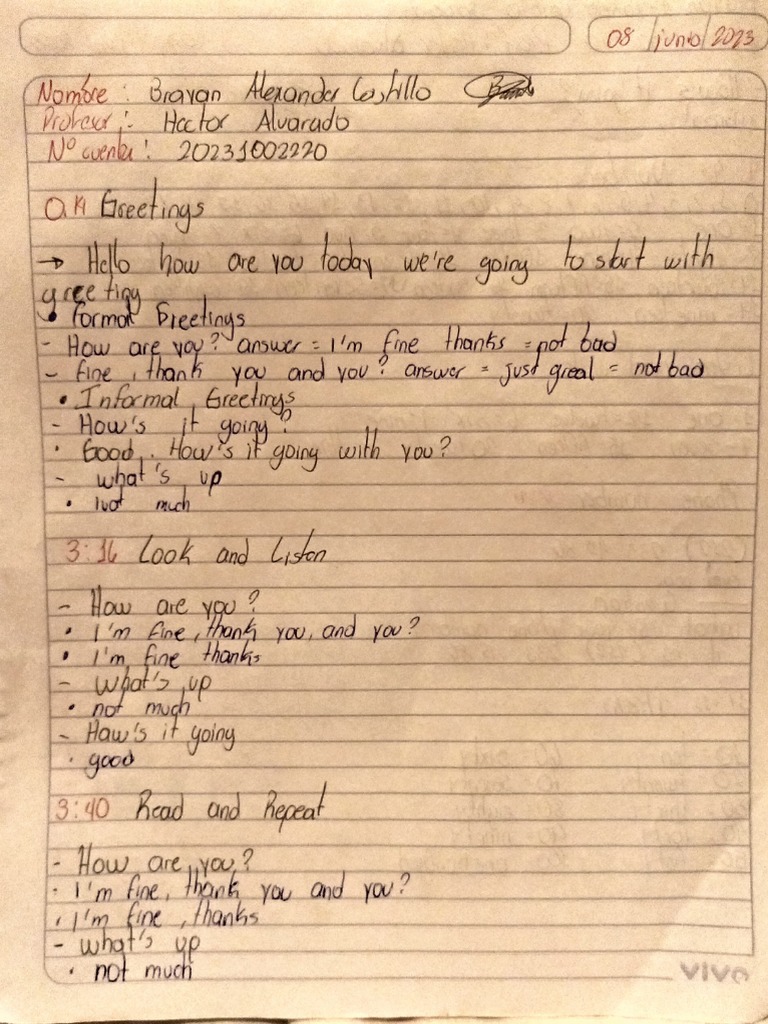 08 / junio / 2023
Nombre : Brayan Alexander Castillo
Profesor : Hector Alvarado
N° cuenta : 20231002220
0.14 Greetings
→ Hello how are you today we're going to start with
greeting
• Formal Greetings
- How are you? answer = I'm fine thanks = not bad
- fine, thank you and you? answer = just great = not bad
• Informal Greetings
- How's it going?
• Good. How's it going with you?
- what's up
• not much
3:16 Look and Listen
- How are you?
• I'm fine, thank you, and you?
• I'm fine thanks
- What's up
• not much
- Haw's it going
• good
3:40 Read and Repeat
- How are you?
• I'm fine, thank you and you?
• I'm fine, thanks
- what's up
• not much
vivo